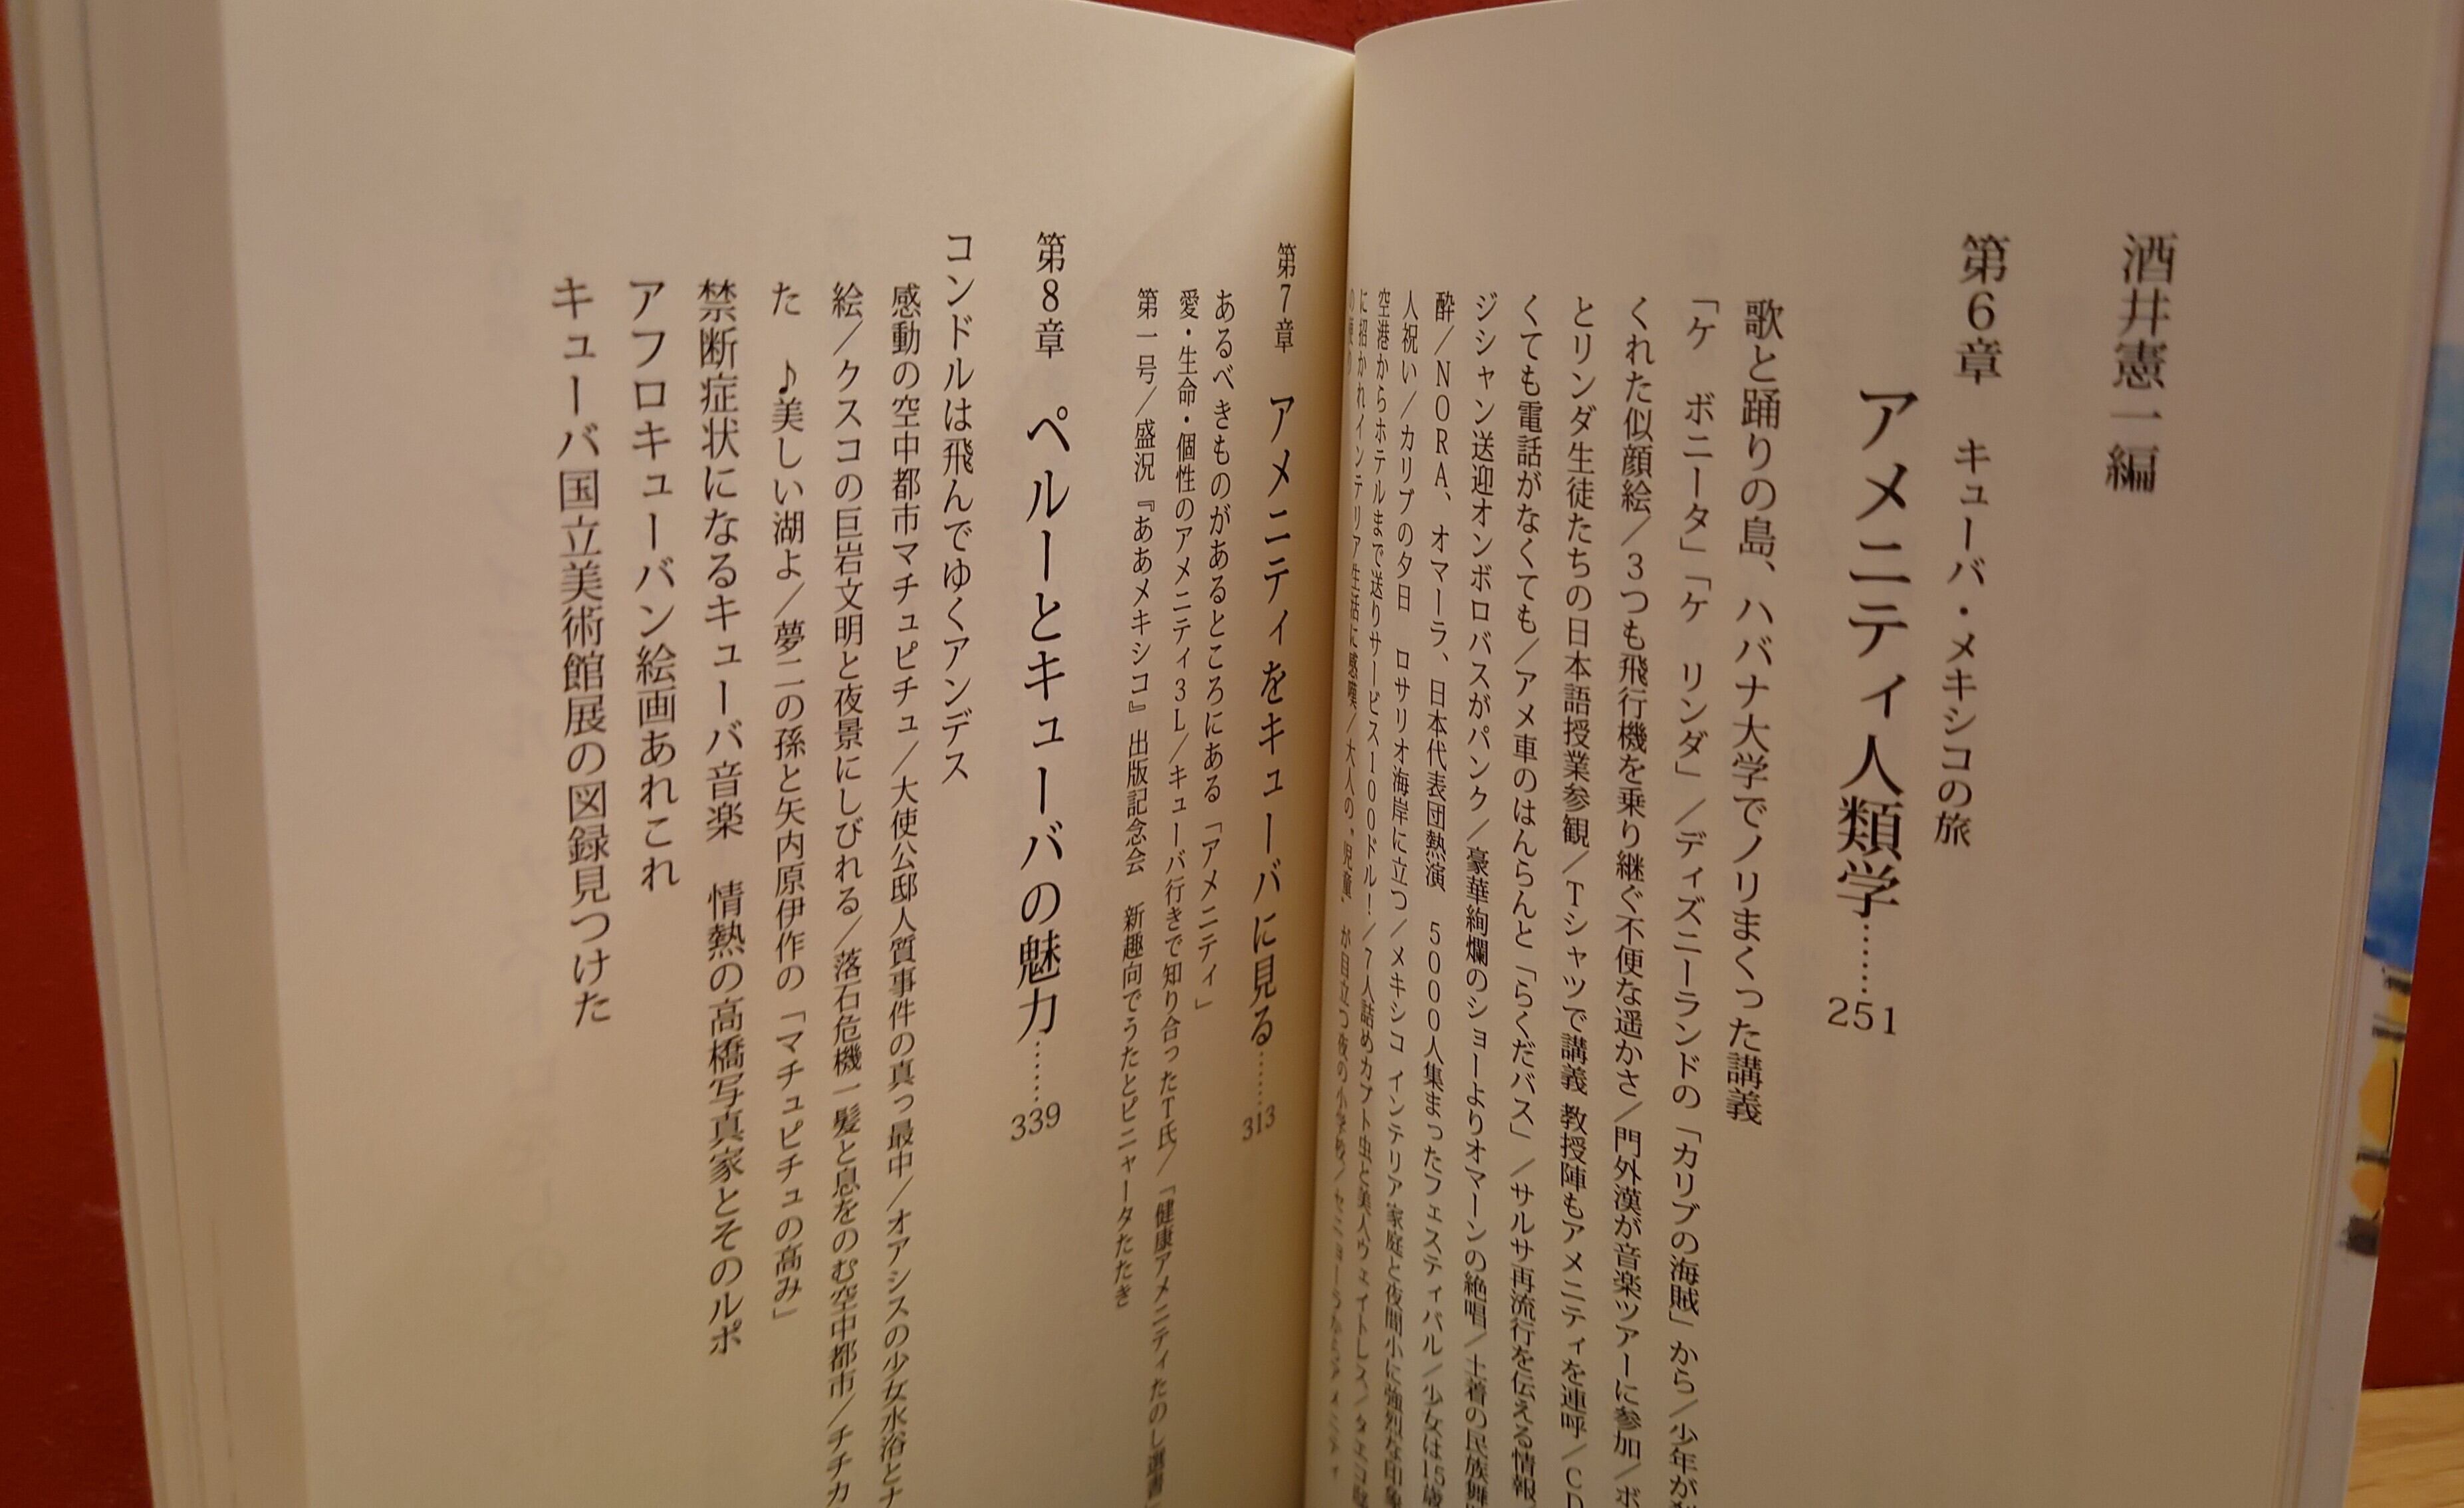 酒井憲一編
第6章　キューバ・メキシコの旅
アメニティ人類学……251
歌と踊りの島、ハバナ大学でノリまくった講義
「ケ　ボニータ」「ケ　リンダ」／ディズニーランドの「カリブの海賊」から／少年が
くれた似顔絵／3つも飛行機を乗り継ぐ不便な遥かさ／門外漢が音楽ツアーに参加／ボ
とリンダ生徒たちの日本語授業参観／Tシャツで講義 教授陣もアメニティを連呼／CD
くても電話がなくても／アメ車のはんらんと「らくだバス」／サルサ再流行を伝える情報
ジシャン送迎オンボロバスがパンク／豪華絢爛のショーよりオマーンの絶唱／土着の民族舞
酔／NORA、オマーラ、日本代表団熱演　5000人集まったフェスティバル／少女は15歳
人祝い／カリブの夕日　ロサリオ海岸に立つ／メキシコ インテリア家庭と夜間小に強烈な印象
空港からホテルまで送りサービス100ドル！／7人詰めカブト虫と美人ウェイトレス／
に招かれインテリア生活に感嘆／大人の〝児童〟が目立つ夜の小学校／
第7章　アメニティをキューバに見る……313
あるべきものがあるところにある「アメニティ」
愛・生命・個性のアメニティ3L／キューバ行きで知り合ったT氏／「健康アメニティたのし選書
第一号／盛況『ああメキシコ』出版記念会　新趣向でうたとピニャータたたき
第8章　ペルーとキューバの魅力……339
コンドルは飛んでゆくアンデス
感動の空中都市マチュピチュ／大使公邸人質事件の真っ最中／オアシスの少女水浴とナ
絵／クスコの巨岩文明と夜景にしびれる／落石危機一髪と息をのむ空中都市／チチカ
た　♪美しい湖よ／夢二の孫と矢内原伊作の「マチュピチュの高み」
禁断症状になるキューバ音楽　情熱の高橋写真家とそのルポ
アフロキューバン絵画あれこれ
キューバ国立美術館展の図録見つけた